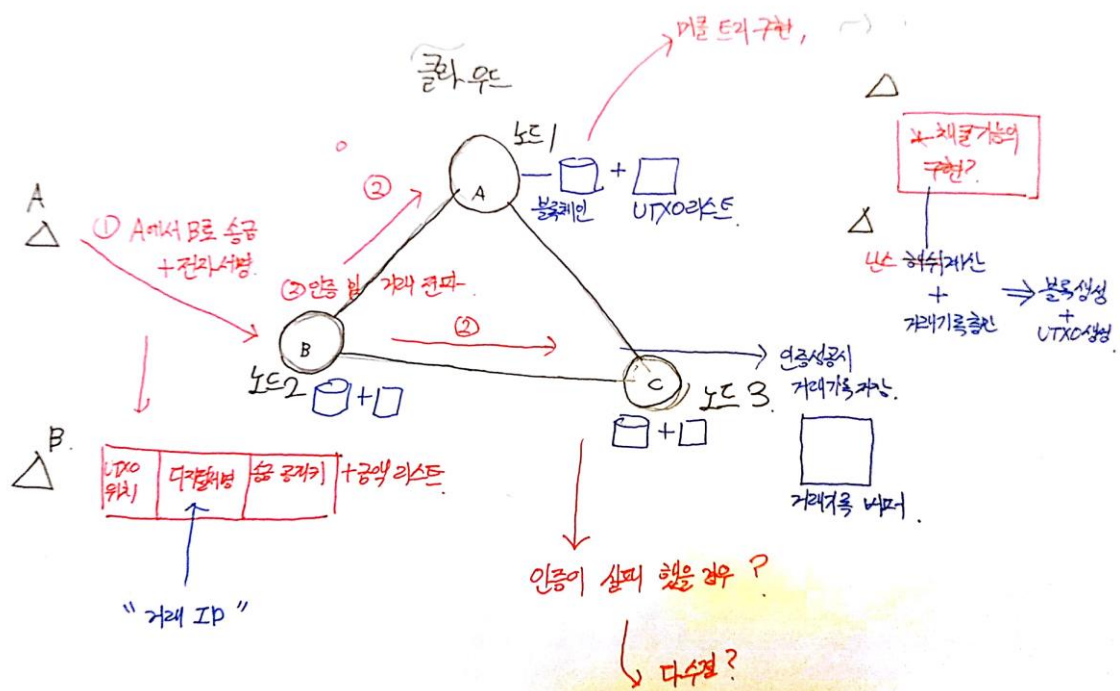 머클 트리 구현,
클라우드
노드1
A
블록체인
+
UTXO 리스트.
* 채굴 기능의
구현?
넌스 해쉬계산
+
거래기록 확인
⇒ 블록생성
+
UTXO생성
A
① A에서 B로 송금
+전자서명.
②
② 인증 및 거래 전파
②
B
노드2
+
C
노드 3.
+
인증성공시
거래기록 저장.
거래기록 버퍼.
B.
UTXO
위치
디지털서명
송금 공개키
+금액 리스트.
"거래 ID"
인증이 실패 했을 경우?
다수결?